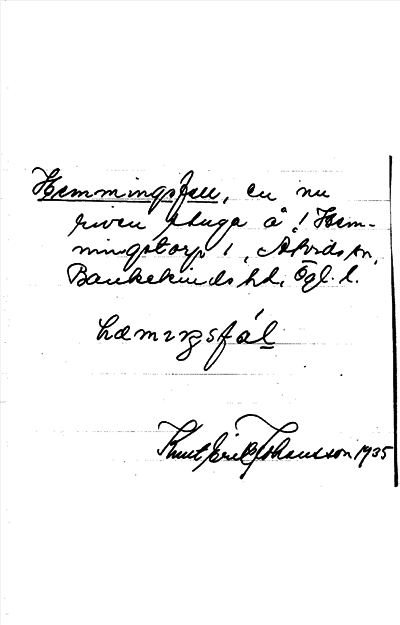 Hemmingsfall, en nu
riven stuga å 1 Hem-
mingstorp 1, Åtvids sn,
Bankekinds hd, Ögl. l.
hæmıŋsfál
Knut Erik Johansson 1935